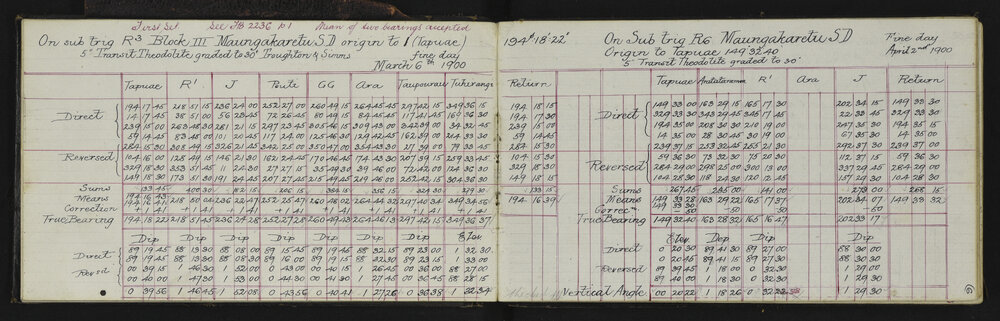 First Set See FB 2236 p 1 Mean of five bearings accepted
On sub trig R³ Block III Maungakaretu S.D origin to I (Tapuae)
5" Transit Theodolite graded to 30" Troughton & Simms fine day
March 6th 1900
Tapuae R' J Poutu GG Ara Taupourau Tuhirangi Return
Direct
194 17 45 218 51 15 236 24 00 252 27 00 260 49 15 264 45 45 297 42 15 349 36 15 194 18 15
14 17 45 38 51 00 56 23 45 72 26 45 80 49 15 84 45 45 117 41 45 169 36 30 194 17 30
239 15 00 263 48 30 281 21 15 297 23 45 305 46 15 309 43 00 342 39 00 34 32 45 239 15 00
59 14 45 83 48 00 101 20 45 117 24 00 125 46 30 129 42 45 162 39 00 214 33 30 59 14 45
284 15 30 308 49 15 326 21 45 342 25 00 350 47 00 354 43 30 27 39 00 79 33 45 284 15 30
Reversed
104 16 00 128 49 15 146 21 30 162 24 45 170 46 45 174 43 30 207 39 15 259 33 45 104 15 30
329 18 30 353 51 45 11 24 30 27 27 15 35 49 30 39 46 00 72 42 00 124 36 30 329 18 30
149 18 30 173 51 30 191 24 45 207 27 45 215 49 45 219 46 00 252 42 15 304 36 30 149 18 15
Sums 133 45 400 30 182 15 206 15 384 15 356 15 324 30 379 30 133 15
Means 194 16 43 218 50 04 236 22 47 252 25 47 260 48 02 264 44 32 297 40 34 349 34 56 194 16 39
Correction +1 41 +1 41 +1 41 +1 41 +1 41 +1 41 +1 41 +1 41
True Bearing 194 18 22 218 51 45 236 24 28 252 27 28 260 49 43 264 46 13 297 42 15 349 36 37
Dip Dip Dip Dip Dip Dip Dip Elev
Direct
89 19 45 88 13 30 88 08 00 89 15 45 89 19 45 88 32 15 89 23 00 1 32 30
89 19 45 88 13 30 88 08 30 89 16 00 89 19 15 88 32 30 89 23 15 1 33 00
Revsd
00 39 15 1 46 30 1 52 00 0 43 00 00 40 15 1 26 45 00 36 00 88 27 00
00 40 00 1 47 30 1 53 00 0 44 30 00 41 30 1 27 45 00 36 45 88 28 15
0 39 56 1 46 45 1 52 08 0 43 56 0 40 41 1 27 26 0 36 38 1 32 34
194° 18' 22"
On Sub trig R6 Maungakaretu S.D Fine day
Origin to Tapuae 149° 32' 40" April 2nd 1900
5" Transit Theodolite graded to 30"
Tapuae R' Ara J Return
Direct
149 33 00 163 29 15 165 17 30 202 34 15 149 33 30
329 33 30 343 29 45 345 17 45 22 33 45 329 33 30
194 35 00 208 30 30 210 19 00 247 35 30 194 35 15
14 35 00 28 30 45 30 19 00 67 35 30 14 35 00
239 37 15 253 32 45 255 21 30 292 37 30 239 37 00
Reversed
59 36 30 73 32 30 75 20 30 112 37 15 59 36 30
284 29 00 298 25 00 300 13 00 337 29 45 284 29 00
104 28 30 118 24 30 120 12 45 157 29 30 104 28 30
Sums 267 45 235 00 141 00 273 00 268 15
Means 149 33 28 163 29 22 165 17 37 202 34 07 149 33 32
149 33 30
Correcn - 50 - 50 - 50 50
True Bearing 149 32 40 163 28 32 165 16 47 202 33 17
Elev Dep Dep Dip
Direct 0 20 30 89 41 30 89 27 00 88 30 00
0 20 45 89 41 15 89 27 30 88 30 00
Reversed 89 39 45 1 18 00 0 32 30 1 29 00
89 40 00 1 18 30 0 32 30 1 29 30
Vertical Angle 00 20 22 1 18 26 0 32 38 1 29 30